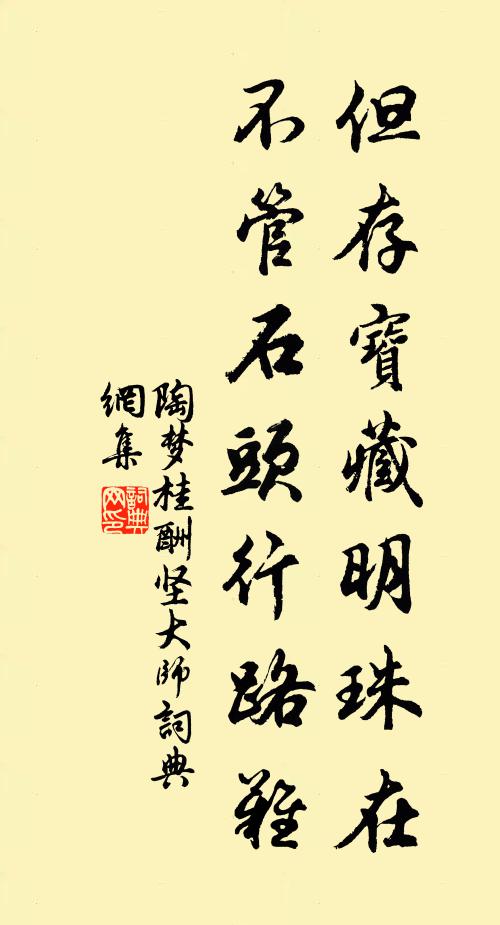 但存寶藏明珠在
不管石頭行路難
陶梦桂酬坚大师詞典
網集
詞典
网印